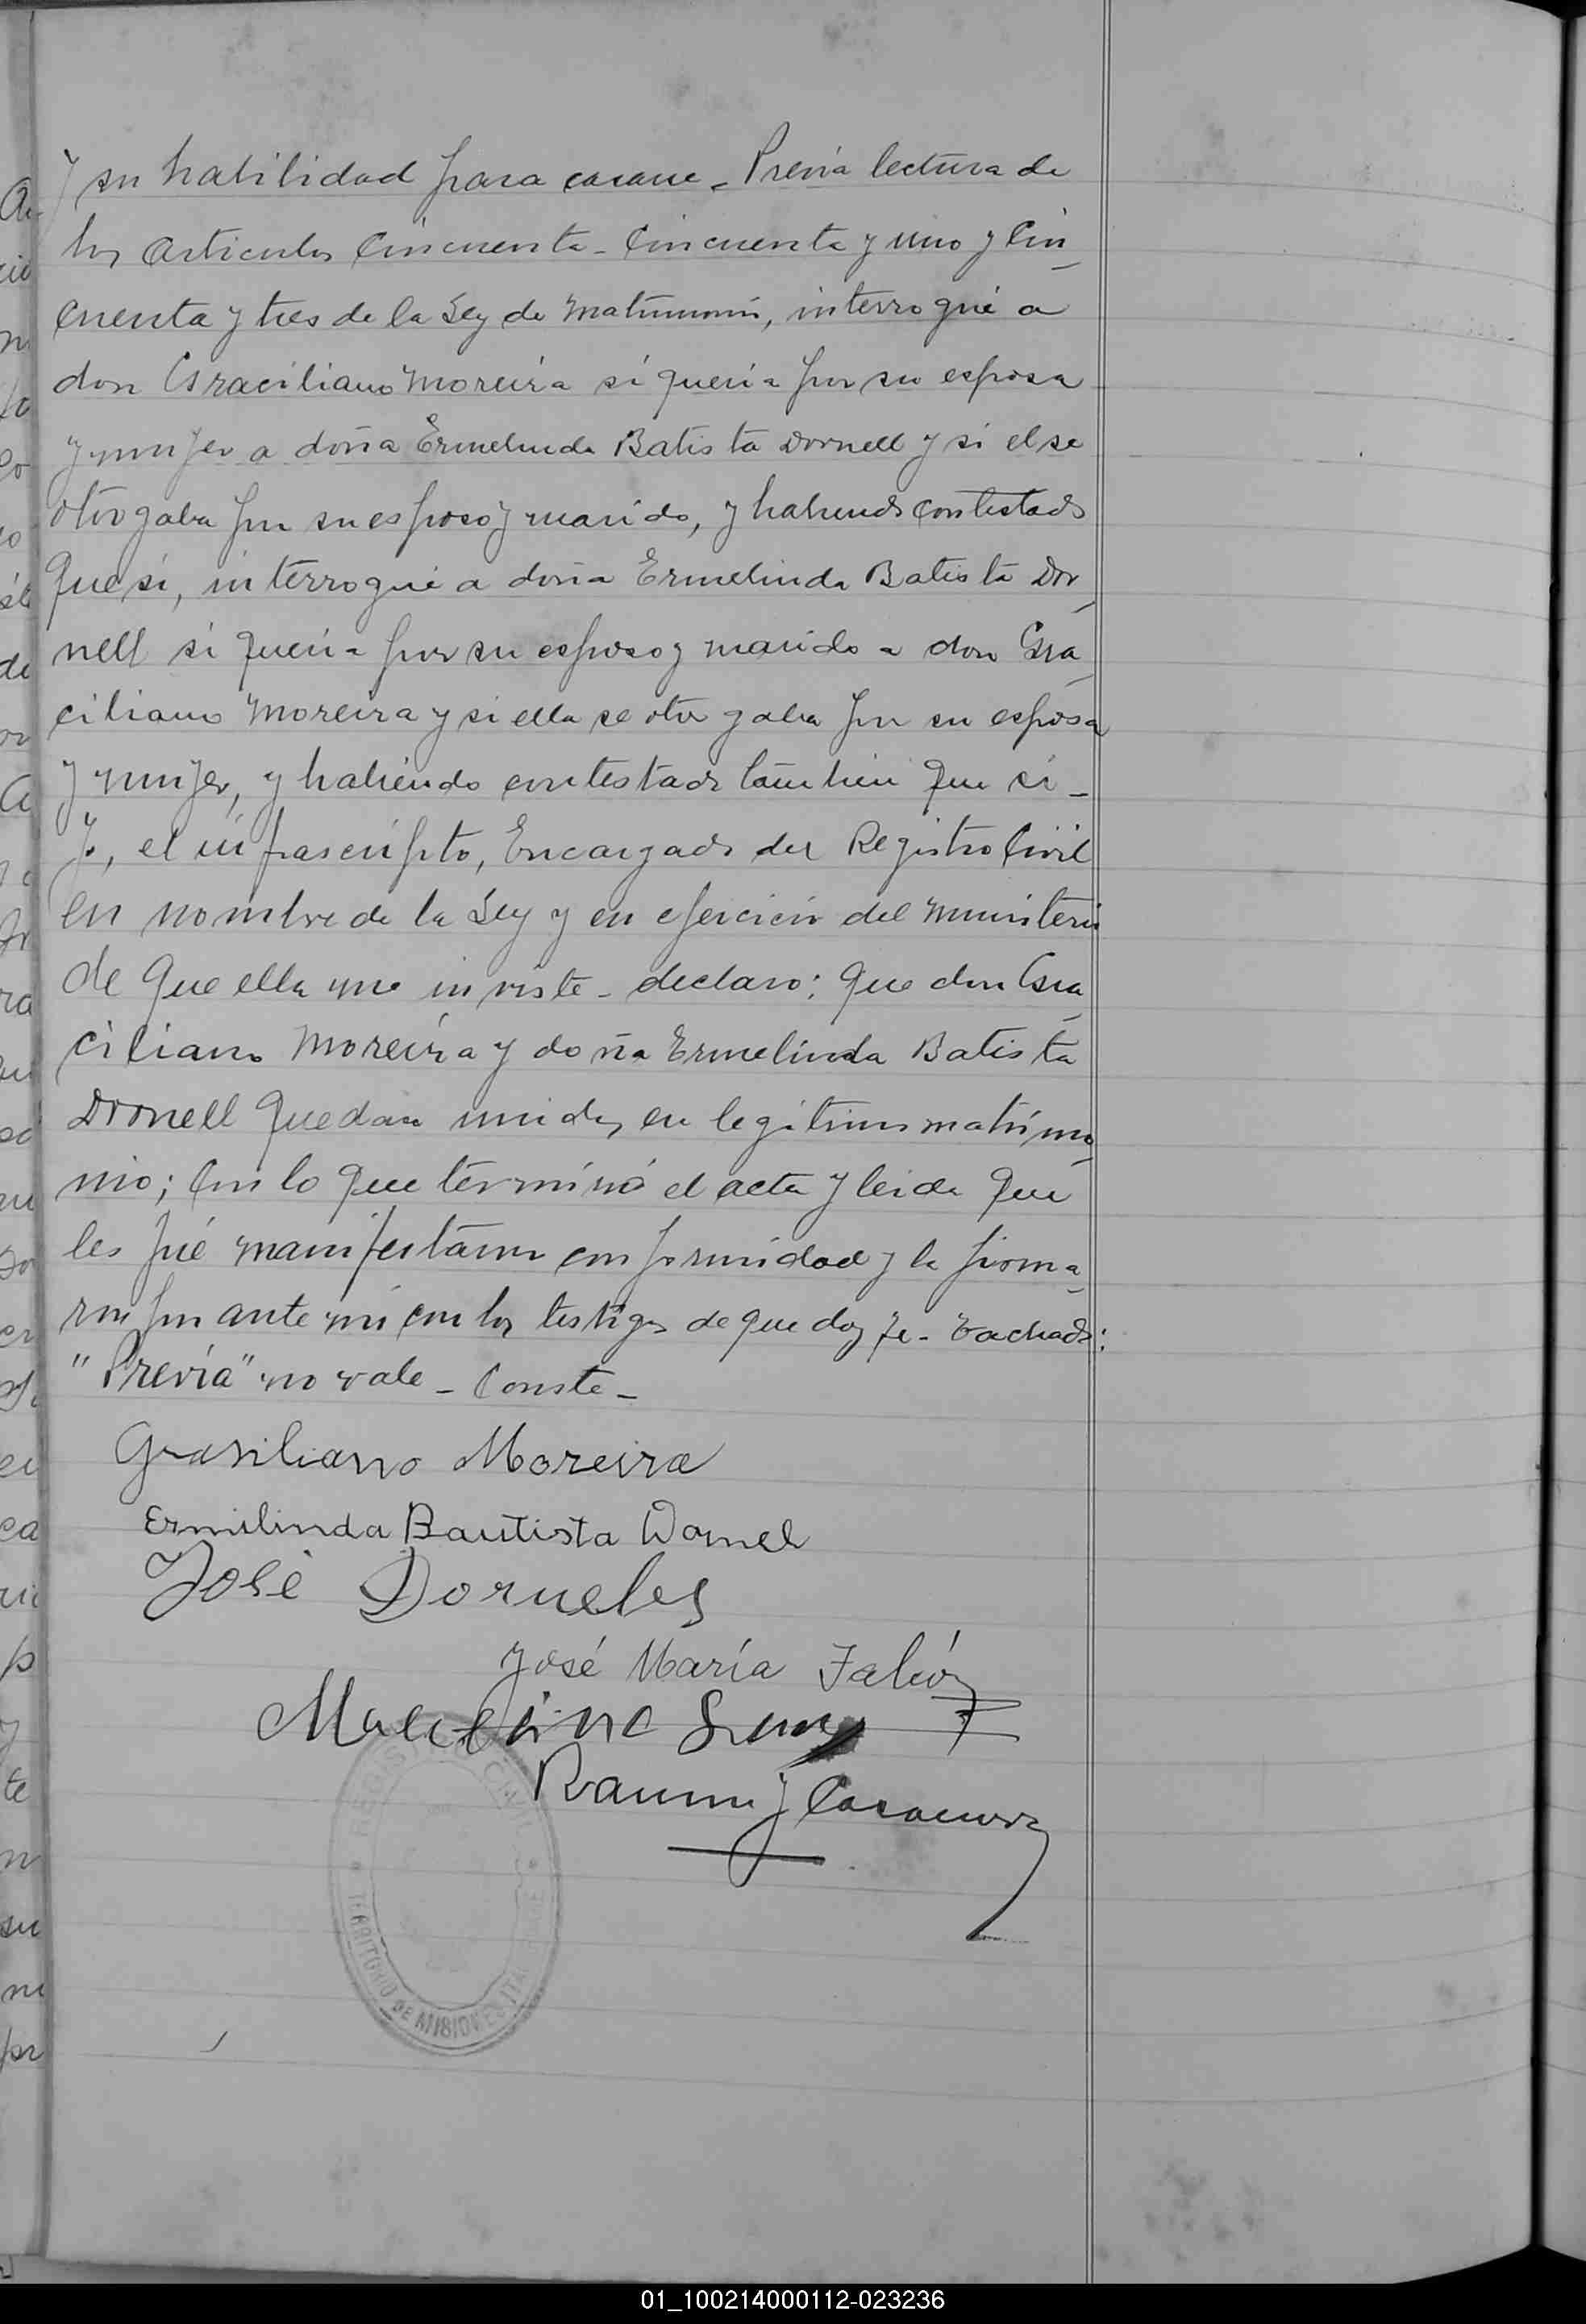 y su habilidad para casarse - Previa lectura de
los Articulos Cincuenta - Cincuenta y uno y Cin-
cuenta y tres de la Ley de Matrimonio, interrogué a
don Graciliano Moreira si queria por su esposa
y mujer a doña Ermelinda Batista Dornell y si el se
otorgaba por su esposo y marido, y habiendo contestado
que si, interrogué a doña Ermelinda Batista Dor-
nell si queria por su esposo y marido a don Gra-
ciliano Moreira y si ella se otorgaba por su esposa
y mujer, y habiendo contestado tambien que si -
Yo, el infrascripto, Encargado del Registro Civil
en nombre de la Ley y en ejercicio del ministerio
de que ella me inviste - declaro: que don Gra-
ciliano Moreira y doña Ermelinda Batista
Dornell quedan unidos en legitimo matrimo-
nio; Con lo que terminó el acta y leida que
les fué manifestaron conformidad y la firma-
ron por ante mi con los testigos de que doy fe - Tachado:
"Previa" no vale - Conste -
Grasiliano Moreira
Ermilinda Bautista Dornel
José Dorneles
José María
Ramon J Casanova
REGISTRO CIVIL
TERRITORIO DE MISIONES
01_100214000112-023236